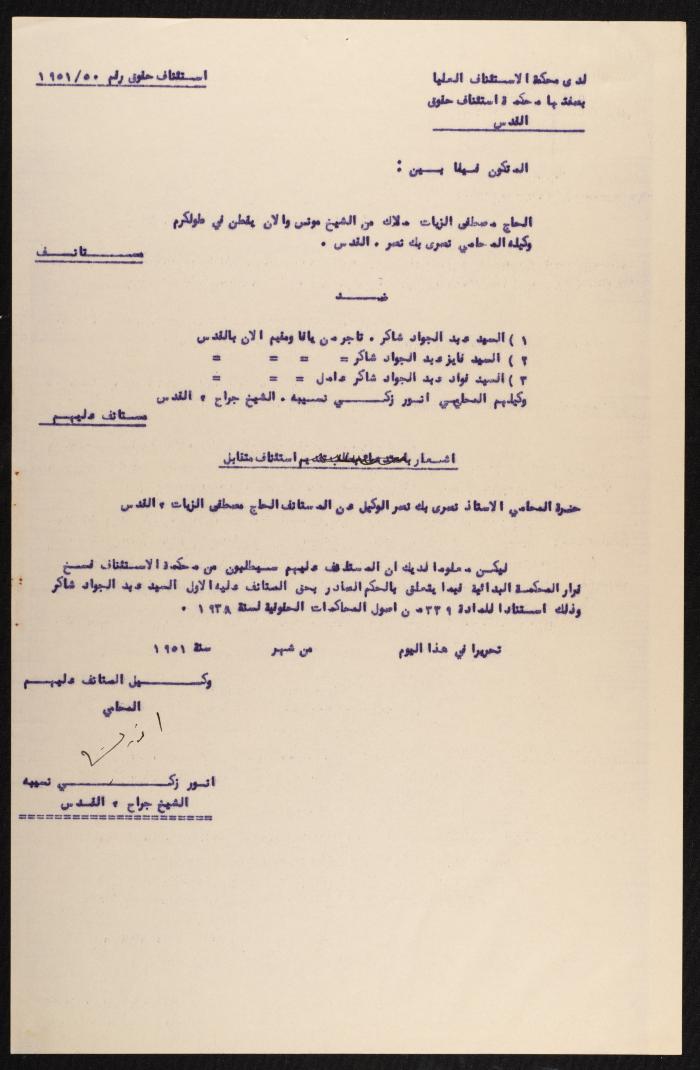 لدى محكمة الاستئناف العليا
استئناف حقوق رقم ١٩٥١/٥٠
بصفتها محكمة استئناف حقوق
القدس
المتكون فيما بــين :
الحاج مصطفى الزيات ملاك من الشيخ مونس والان يقطن في طولكرم
وكيله المحامي نصرى بك نصر . القدس .
مســـتانــف
ضــــد
١ ) السيد عبد الجواد شاكر . تاجر من يافا ومقيم الان بالقدس
٢ ) السيد فايز عبد الجواد شاكر = = = =
٣ ) السيد فواد عبد الجواد شاكر عامل = = =
وكيلهم المحامي انور زكــــي نسيبه . الشيخ جراح ، القدس
مستانف عليهــم
اشعار استئناف متقابل
حضرة المحامي الاستاذ نصرى بك نصر الوكيل عن المستانف الحاج مصطفى الزيات ، القدس
ليكن معلوما لديك ان المستانف عليهم سيطلبون من محكمة الاستئناف فسخ
قرار المحكمة البدائية فيما يتعلق بالحكم الصادر بحق المستانف عليه الاول السيد عبد الجواد شاكر
وذلك استنادا للمادة ٣٣٩ من اصول المحاكمات الحقوقية لسنة ١٩٣٨ .
تحريرا في هذا اليوم من شهر سنة ١٩٥١
وكـــيل المستانف عليهــم
المحامي
انور زكــــي نسيبه
الشيخ جراح ، القدس